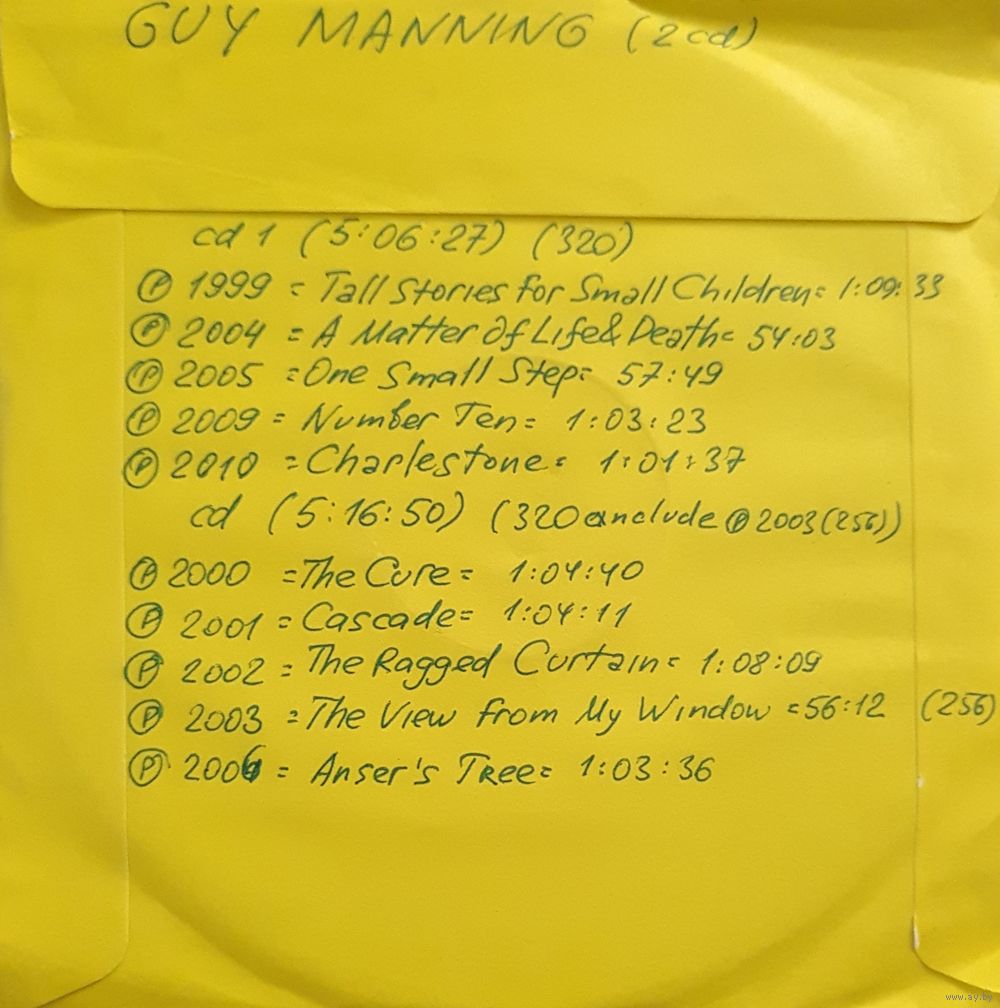 GUY MANNING (2cd)
cd 1 (5:06:27) (320)
Ⓟ 1999 = Tall Stories for Small Children = 1:09:33
Ⓟ 2004 = A Matter Of Life & Death = 54:03
Ⓟ 2005 = One Small Step = 57:49
Ⓟ 2009 = Number Ten = 1:03:23
Ⓟ 2010 = Charlestone = 1:01:37
cd (5:16:50) (320 anclude Ⓟ 2003 (256))
Ⓟ 2000 = The Cure = 1:04:40
Ⓟ 2001 = Cascade = 1:04:11
Ⓟ 2002 = The Ragged Curtain = 1:08:09
Ⓟ 2003 = The View From My Window = 56:12 (256)
Ⓟ 2006 = Anser's Tree = 1:03:36
www.ay.by